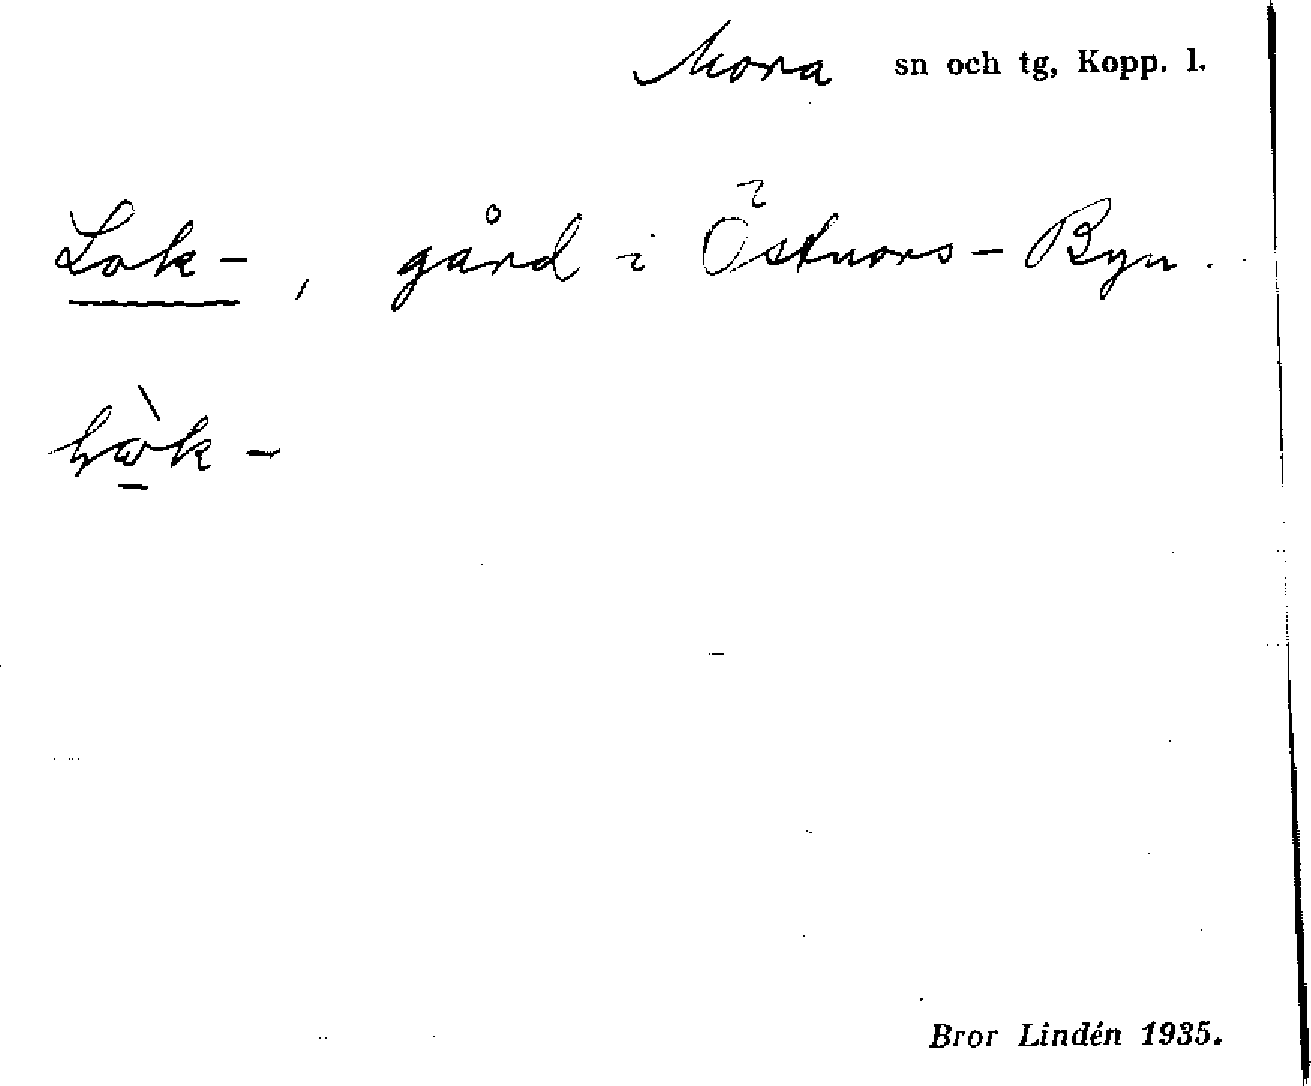 Mora sn och tg, Kopp. l.
Lok-, gård i Östnors-Byn.
Bror Lindén 1935.